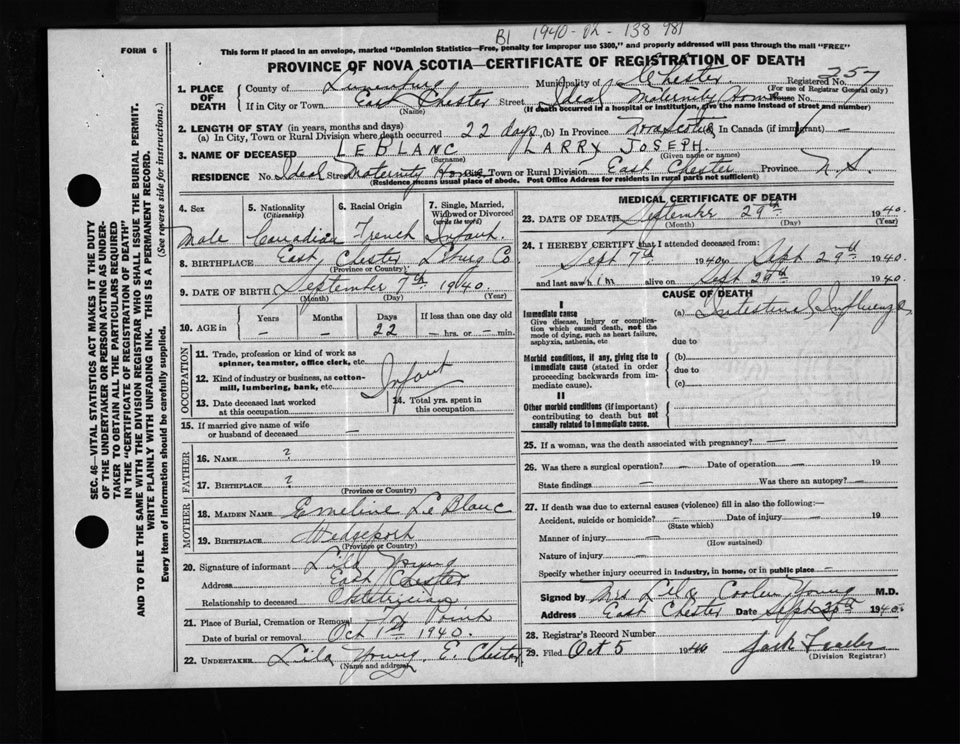 B1 1940-pk- 138 981
FORM 6
This form if placed in an envelope, marked "Dominion Statistics—Free, penalty for improper use $300," and properly addressed will pass through the mail "FREE"
PROVINCE OF NOVA SCOTIA—CERTIFICATE OF REGISTRATION OF DEATH
1. PLACE OF DEATH
County of Lunenburg Municipality of Chester Registered No. 257
(For use of Registrar General only)
If in City or Town East Chester Street Ideal Maternity Home House No.
(Name) (If death occurred in a hospital or institution, give the name instead of street and number)
2. LENGTH OF STAY (in years, months and days)
(a) In City, Town or Rural Division where death occurred 22 days (b) In Province Nova Scotia In Canada (if immigrant) —
3. NAME OF DECEASED LEBLANC LARRY JOSEPH.
(Surname) (Given name or names)
RESIDENCE No. Ideal Street Maternity Home City Town or Rural Division East Chester Province N.S.
(Residence means usual place of abode. Post Office Address for residents in rural parts not sufficient)
4. Sex 5. Nationality (Citizenship) 6. Racial Origin 7. Single, Married, Widowed or Divorced (write the word)
Male Canadian French Infant.
8. BIRTHPLACE East Chester L'burg Co.
(Province or Country)
9. DATE OF BIRTH September 7th 1940.
(Month) (Day) (Year)
10. AGE in Years Months Days If less than one day old
— — 22 — hrs. or — min.
OCCUPATION
11. Trade, profession or kind of work as spinner, teamster, office clerk, etc.
12. Kind of industry or business, as cotton-mill, lumbering, bank, etc.
Infant
13. Date deceased last worked at this occupation
14. Total yrs. spent in this occupation
15. If married give name of wife or husband of deceased —
FATHER
16. NAME ?
17. BIRTHPLACE ?
(Province or Country)
MOTHER
18. MAIDEN NAME Emeline Le Blanc
19. BIRTHPLACE Wedgeport
(Province or Country)
20. Signature of informant Lila Young
Address East Chester
Relationship to deceased Obstetrician
21. Place of Burial, Cremation or Removal Point
Date of burial or removal Oct 1st 1940.
22. UNDERTAKER Lila Young, E. Chester
(Name and address)
MEDICAL CERTIFICATE OF DEATH
23. DATE OF DEATH September 29th 1940.
(Month) (Day)
24. I HEREBY CERTIFY that I attended deceased from:
Sept 7th 1940 to Sept 29th 1940
and last saw him alive on Sept 29th 1940
CAUSE OF DEATH
I
Immediate cause
Give disease, injury or complication which caused death, not the mode of dying, such as heart failure, asphyxia, asthenia, etc
(a) Intestine Influenza
due to
Morbid conditions, if any, giving rise to immediate cause (stated in order proceeding backwards from immediate cause).
(b)
due to
(c)
II
Other morbid conditions (if important) contributing to death but not causally related to immediate cause.
25. If a woman, was the death associated with pregnancy? —
26. Was there a surgical operation? — Date of operation — 19
State findings — Was there an autopsy? —
27. If death was due to external causes (violence) fill in also the following:—
Accident, suicide or homicide? — Date of injury — 19
(State which)
Manner of injury —
(How sustained)
Nature of injury —
Specify whether injury occurred in industry, in home, or in public place —
Signed by Mrs Lila Coolen Young M.D.
Address East Chester Date Sept 30th 1940
28. Registrar's Record Number
29. Filed Oct 5 1940
(Division Registrar)
SEC. 46—VITAL STATISTICS ACT MAKES IT THE DUTY
OF THE UNDERTAKER OR PERSON ACTING AS UNDERTAKER
TO OBTAIN ALL THE PARTICULARS REQUIRED
IN THE "CERTIFICATE OF REGISTRATION OF DEATH"
AND TO FILE THE SAME WITH THE DIVISION REGISTRAR WHO SHALL ISSUE THE BURIAL PERMIT.
WRITE PLAINLY WITH UNFADING INK. THIS IS A PERMANENT RECORD.
Every item of information should be carefully supplied. (See reverse side for instructions.)